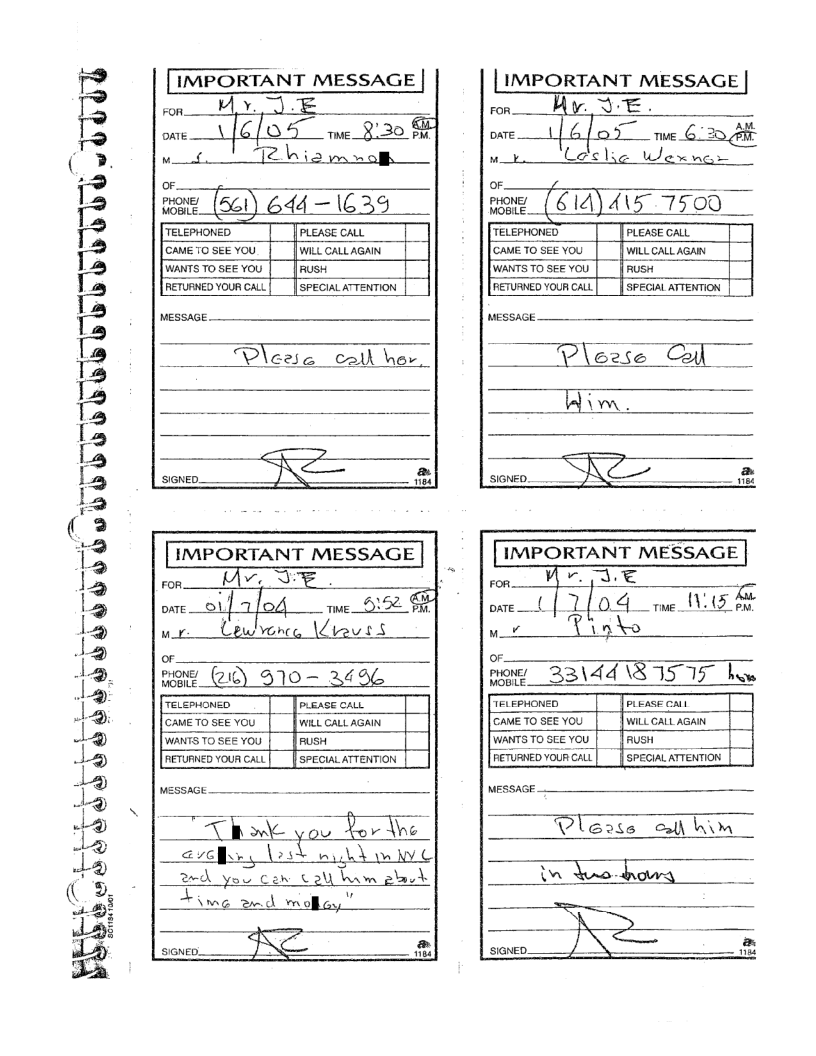 IMPORTANT MESSAGE
FOR Mr. J.E
DATE 1/6/05 TIME 8:30 A.M. P.M.
M s.
OF
PHONE/ MOBILE (561) 644-1639
TELEPHONED PLEASE CALL
CAME TO SEE YOU WILL CALL AGAIN
WANTS TO SEE YOU RUSH
RETURNED YOUR CALL SPECIAL ATTENTION
MESSAGE
Please call her.
SIGNED
1184
IMPORTANT MESSAGE
FOR Mr. J.E.
DATE 1/6/05 TIME 6:30 A.M. P.M.
M r. Leslie Wexner
OF
PHONE/ MOBILE (614) 415-7500
TELEPHONED PLEASE CALL
CAME TO SEE YOU WILL CALL AGAIN
WANTS TO SEE YOU RUSH
RETURNED YOUR CALL SPECIAL ATTENTION
MESSAGE
Please Call
Him.
SIGNED
1184
IMPORTANT MESSAGE
FOR Mr. J.E
DATE 01/7/04 TIME 5:52 A.M. P.M.
M r. Lewrence Krauss
OF
PHONE/ MOBILE (216) 970-3496
TELEPHONED PLEASE CALL
CAME TO SEE YOU WILL CALL AGAIN
WANTS TO SEE YOU RUSH
RETURNED YOUR CALL SPECIAL ATTENTION
MESSAGE
"Thank you for the
evening last night in NYC
and you can call him about
time and money"
SIGNED
1184
IMPORTANT MESSAGE
FOR Mr. J.E
DATE 1/7/04 TIME 11:15 A.M. P.M.
M r Pinto
OF
PHONE/ MOBILE 33144187575
TELEPHONED PLEASE CALL
CAME TO SEE YOU WILL CALL AGAIN
WANTS TO SEE YOU RUSH
RETURNED YOUR CALL SPECIAL ATTENTION
MESSAGE
Please call him
in two hours
SIGNED
1184